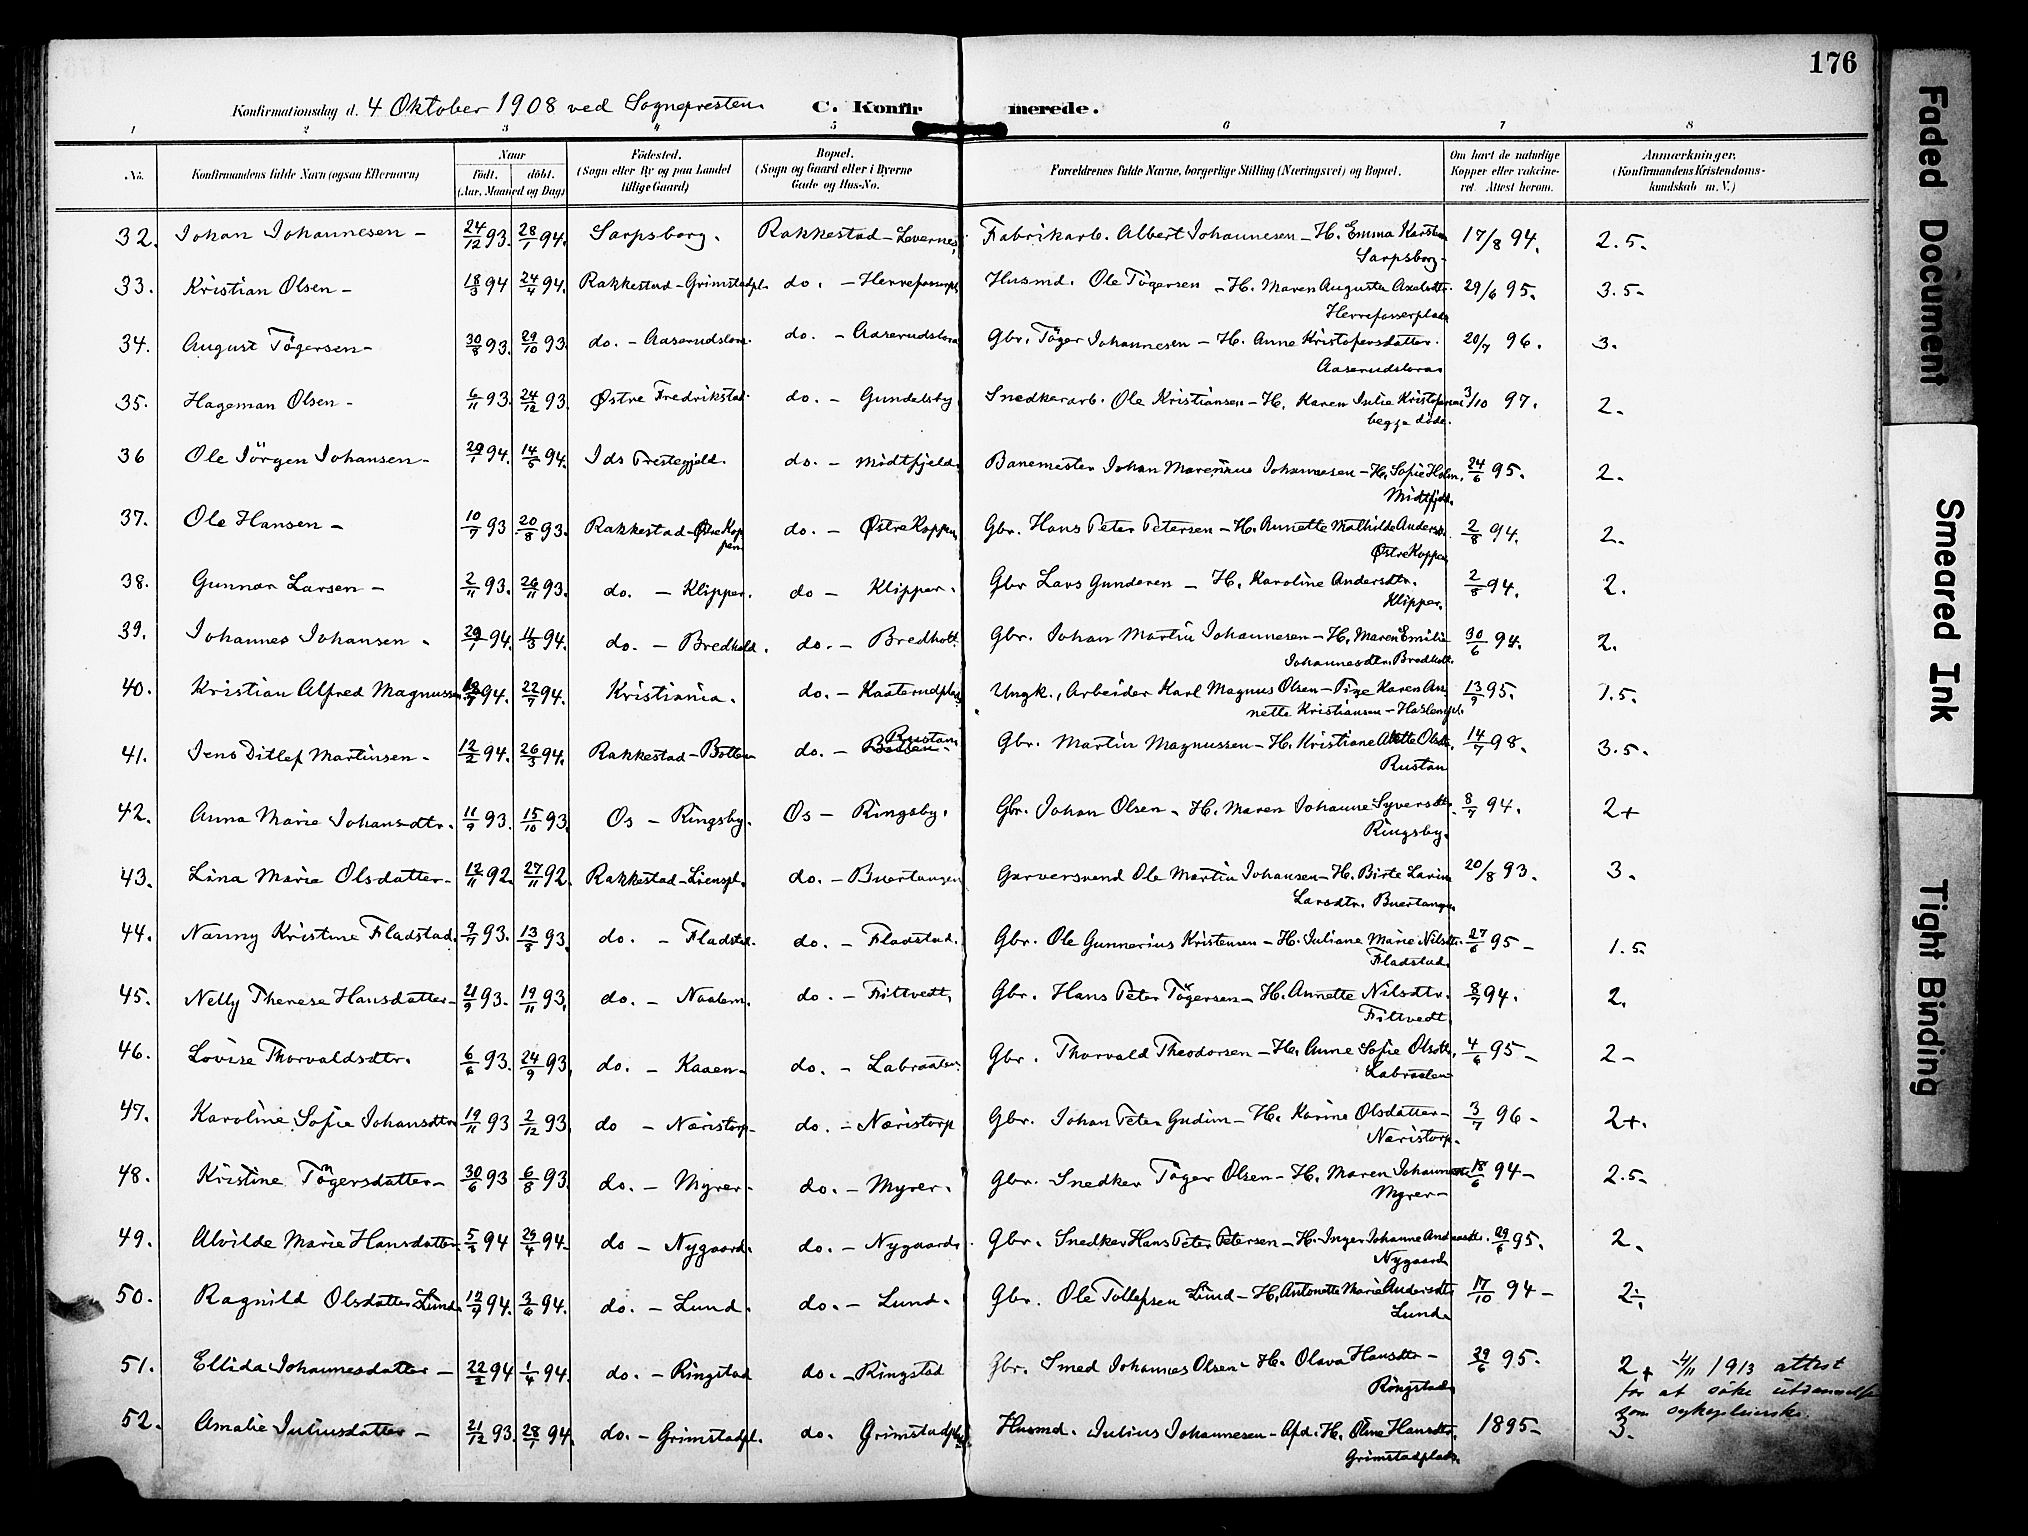 176
Konfirmationsdag d. 4 Oktober 1908 ved Sognepresten. C. Konfirmerede.
1 2 3 4 5 6 7 8
No. Konfirmandens fulde Navn (ogsaa Efternavn) Naar Født. døbt. (Aar, Maaned og Dag) Fødested. (Sogn eller By og paa Landet tillige Gaard) Bopæl. (Sogn og Gaard eller i Byerne Gade og Hus-No. Forældrenes fulde Navne, borgerlige Stilling (Næringsvei) og Bopæl. Om havt de naturlige Kopper eller vakcineret. Attest herom. Anmærkninger. (Konfirmandens Kristendomskundskab m. V.)
32. Johan Johannesen – 24/12 93. 28/1 94. Sarpsborg. Rakkestad – Levernes, Fabrikarb. Albert Johannesen – H. Emma Karstens 17/8 94. 2.5.
Sarpsborg.
33. Kristian Olsen – 18/3 94 24/4 94. Rakkestad – Grimstadpl. do. – Herrefosserpl. Husmd. Ole Tögersen – H. Maren Augusta Axelsdtr. 29/6 95. 3.5–
Herrefosserplads
34. August Tögersen – 30/8 93. 29/10 93. do. – Aaserudslora. do. – Aaserudslora Gbr. Töger Johannesen – H. Anne Kristofersdatter. 20/7 96. 3.
Aaserudslora
35. Hageman Olsen – 6/11 93. 24/12 93. Østre Fredrikstad. do. – Gundelsby Snedkerarb. Ole Kristiansen – H. Karen Julie 3/10 97. 2.
begge döde.
36 Ole Jörgen Johansen – 29/1 94. 14/5 94. Ids Prestegjeld. do. – Midtfjeld. Banemester Johan Marenius Johannesen – H. Sofie Holm. 24/6 95. 2.
Midtfjeld.
37. Ole Hansen – 10/7 93 20/8 93. Rakkestad – Østre Koppen do. – Østre Koppen Gbr. Hans Peter Petersen – H. Annette Mathilde Andersd. 2/8 94. 2.
Østre Koppen
38. Gunnar Larsen – 2/11 93. 26/11 93. do. – Klipper. do – Klipper. Gbr Lars Gundersen – H. Karoline Andersdtr. 2/8 94. 2.
Klipper.
39. Johannes Johansen . 29/1 94. 4/3 94. do. – Bredholt. do. – Bredholt. Gbr. Johan Martin Johannesen – H. Maren Emilie 30/6 94. 2.
Johannesdtr. Bredholt
40. Kristian Alfred Magnussen 94. 22/7 94. Kristiania. do. – Kaaterudplads Ungk., Arbeider Karl Magnus Olsen – Pige Karen An- 13/9 95. 1.5.
nette Kristiansen – Haslempl.
41. Jens Ditlef Martinsen – 12/2 94. 26/3 94. Rakkestad – Botten do. – Rustan Gbr. Martin Magnussen – H. Kristiane Alette Olsdtr. 14/7 98. 3.5.
Rustan
42. Anna Marie Johansdtr. 11/9 93. 15/10 93. Os – Ringsby. Os – Ringsby. Gbr. Johan Olsen – H. Maren Johanne Syversdtr. 8/7 94. 2+
Ringsby.
43. Lina Marie Olsdatter – 12/11 92. 27/11 92. Rakkestad – Lienspl. do. – Buertangen Garversvend Ole Martin Johansen – H. Birte Larine 20/8 93. 3.
Larsdtr. Buertangen
44. Nanny Kristine Fladstad. 9/7 93. 13/8 93. do. – Fladstad. do. – Fladstad. Gbr. Ole Gunnerius Kristensen – H. Juliane Marie Nilsdtr. 27/6 95 – 1.5
Fladstad.
45. Nelly Therese Hansdatter – 21/9 93. 19/11 93. do. – Naalem. do. – Fittvedt. Gbr. Hans Peter Tögersen – H. Annette Nilsdtr. 8/7 94. 2.
Fittvedt.
46. Lovise Thorvaldsdtr. 6/6 93. 24/9 93. do. – Kaaen – do. – Labraaten. Gbr. Thorvald Theodorsen – H. Anne Sofie Olsdtr. 4/6 95 – 2 –
Labraaten
47. Karoline Sofie Johansdtr. 19/11 93 2/12 93. do – Næristorp – do. – Næristorp Gbr. Johan Peter Gudim – H. Karine Olsdatter – 3/7 96 – 2+.
Næristorp.
48. Kristine Tögersdatter – 30/6 93 6/8 93. do. – Myrer – do. – Myrer. Gbr. Snedker Töger Olsen – H. Maren Johannesdtr. 18/6 94 – 2.5–
Myrer –
49. Alvilde Marie Hansdatter. 5/3 94 29/4 94 – do – Nygaard. do. – Nygaard. Gbr. Snedker Hans Peter Petersen – H. Inger Johanne Andreasdtr. 29/6 95. 2.
Nygaard
50. Ragnild Olsdatter Lund. 94. 3/6 94. do. – Lund. do. – Lund. Gbr. Ole Tollefsen Lund – H. Antonette Marie Andersdtr. 17/10 94 – 2÷
Lund
51. Ellida Johannesdatter – 22/2 94 1/4 94. do. – Ringstad do. – Ringstad Gbr. Smed Johannes Olsen – H. Olava Hansdtr – 29/6 95. 2+ 4/11 1913 attest
Ringstad for at söke utdannelse
som sykepleierske.
52. Amalie Juliusdatter – 21/12 93. 28/1 94. do. – Grimstadpl. do. Grimstadplads. Husmd. Julius Johannesen – Afd. H. Oline Hansdtr. 1895 – 3.
Grimstadplads.
Faded Document
Smeared Ink
Tight Binding